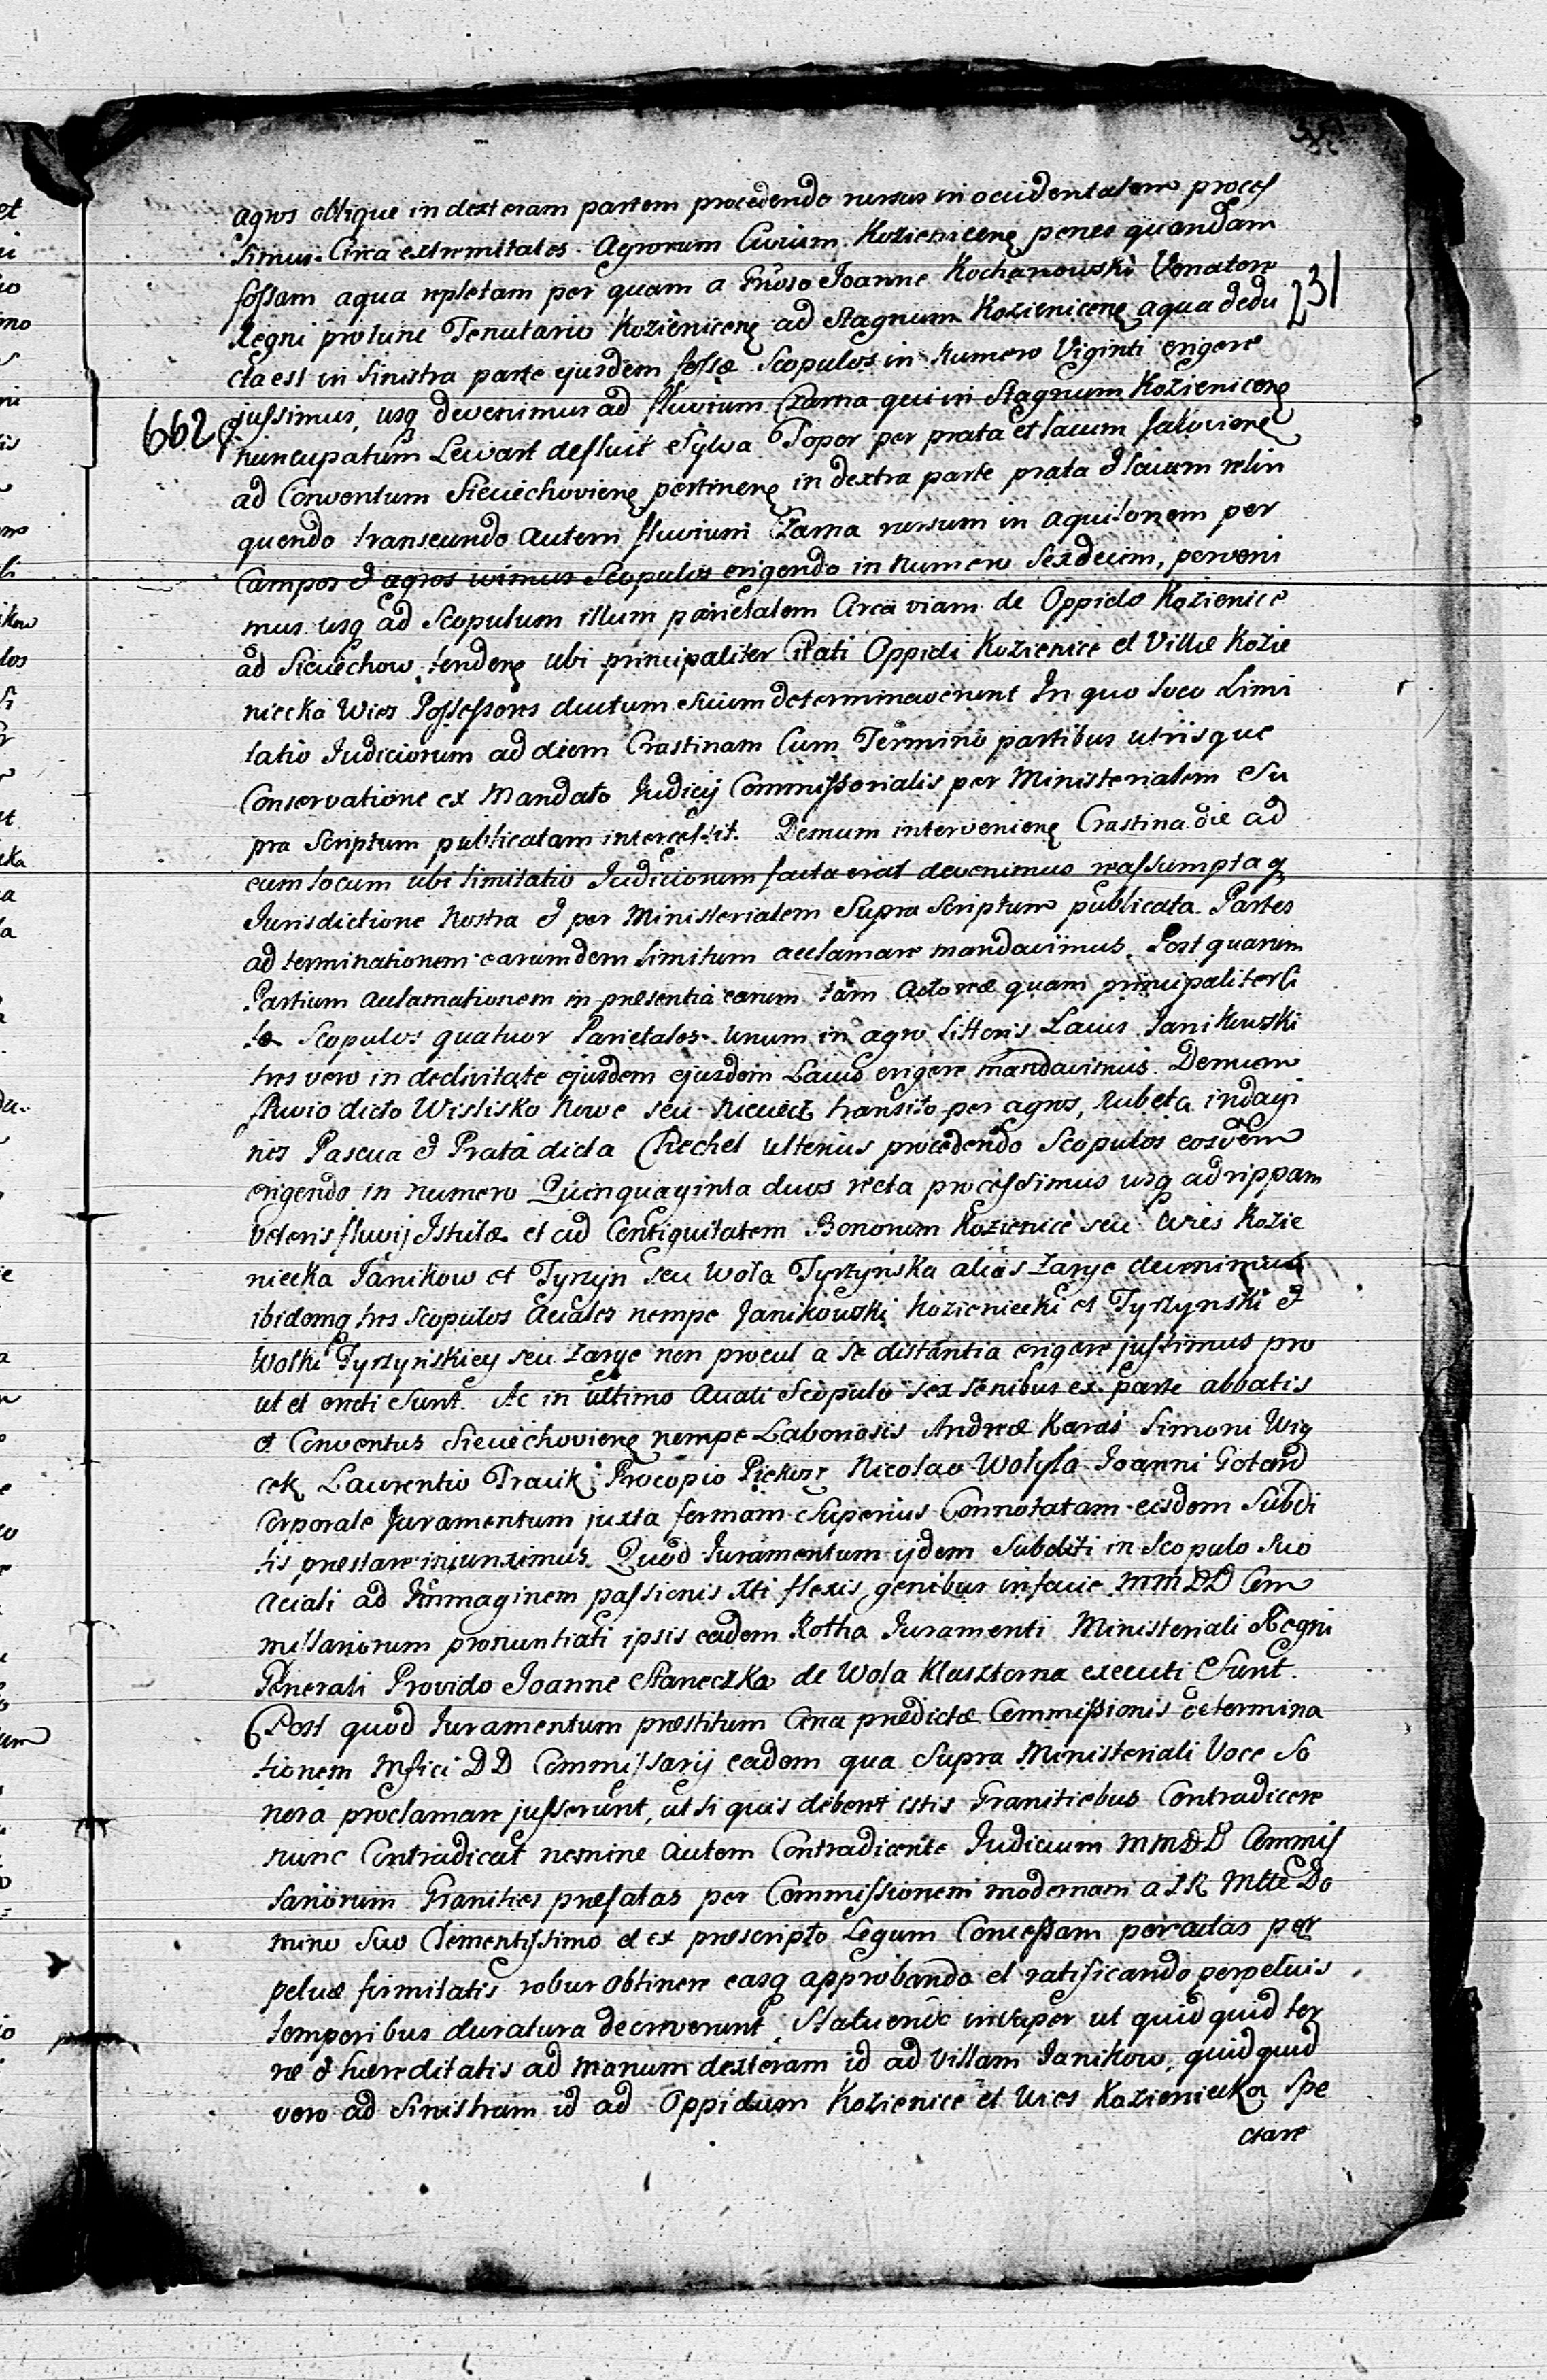 231
662
agros oblique in dexteram partem procedendo versus in occidentalem proces
simus. Circa extremitates Agrorum Civium Kozienicen̄ penes quandam
fossam aqua repletam per quam a Gn̄oso Joanne Kochanowski Venatore
Regni protunc Tenutario Kozienicen̄ ad Stagnum Kozienicen̄ aqua dedu
cta est in sinistra parte ejusdem fossæ Scopulos in numero Viginti erigere
jussimus, usq devenimus ad fluvium Czarna qui in Stagnum Kozienicen̄
nuncupatum Lewart defluit Sylva Topor per prata et lacum
ad Conventum Sieciechovien̄ pertinen̄ in dextra parte prata & lacum relin
quendo transeundo autem fluvium Czarna rursum in aquilonem per
Campos & agros ivimus Scopulos erigendo in numero Sexdecim, perveni
mus usq ad Scopulum illum parietalem Circa viam de Oppido Kozienice
ad Sieciechow tenden̄ ubi principaliter Citati Oppidi Kozienice et Villæ Kozie
niecka Wies Possessores ductum suum determinaverunt In quo loco Limi
tatio Judiciorum ad diem Crastinam Cum Termini partibus utrisque
Conservatione ex Mandato Judicij Commissorialis per Ministerialem Su
pra Scriptum publicatam intercessit. Demum intervenien̄ Crastina die ad
eum locum ubi limitatio Judiciorum facta erat devenimus reassumptaq
Jurisdictione Nostra & per Ministerialem Supra Scriptum publicata Partes
ad terminationem earumdem limitum acclamare mandavimus. Post quarum
Partium acclamationem in præsentia earum tam Actoreæ quam principaliter Ci
tæ Scopulos quatuor Parietales unum in agro littoris Lacus Janikowski
tres vero in declivitate ejusdem ejusdem Lacus erigere mandavimus. Demum
fluvio dicto Wislisko Nowe seu transito per agros, Rubeta indagi
nes Pascua & Prata dicta Chechel ulterius procedendo Scopulos eosdem
erigendo in numero Quinquaginta duos recta processimus usq ad rippam
veteris fluvij Istulæ et ad Contiguitatem Bonorum Kozienice seu Wies Kozie
niecka Janikow et Tyrzyn seu Wola Tyrzyńska alias Zarye devenimus
ibidemq tres Scopulos Aciales nempe Janikowski Kozieniecki et Tyrzynski &
Wolki Tyrzyńskiey seu Zarye non procul a se distantia erigere jussimus pro
ut et erecti sunt. Ac in ultimo Aciali Scopulo sex Senibus ex parte abbatis
& Conventus Sieciechovien̄ nempe Laboriosis Andreæ Karas Simoni Wią
cek Laurentio Pracik Procopio Piekosz Nicolao Wotyla Joanni Gotard
Corporale Juramentum juxta formam Superius Connotatam eisdem Subdi
tis præstare injunximus. Quod Juramentum ijdem Subditi in Scopulo suo
Aciali ad Immaginem passionis Xti flexis genibus in facie MM DD Com
missariorum pronuntiati ipsis eadem Rotha Juramenti Ministeriali Regni
Generali Provido Joanne Staneczka de Wola Klasztorna executi Sunt.
Post quod Juramentum præstitum Circa prædictæ Commissionis determina
tionem Mfici DD Commissarij eadem qua Supra Ministeriali Voce So
nora proclamare jusserunt, ut si quis deberet istis Granitiebus Contradicere
nunc Contradicat nemine autem Contradicente Judicium MM DD Commis
sariorum Granities præfatas per Commissionem modernam a SR Mtte Do
mino Suo Clementissimo et ex præscripto Legum Concessam peractas per
petuæ firmitatis robur obtinere easq approbando et ratificando perpetuis
temporibus duratura decreverunt. insuper ut quid quid ter
ræ & hæreditatis ad manum dexteram id ad Villam Janikow, quid quid
vero ad Sinistram id ad Oppidum Kozienice et Wies Kozieniecka Spe
ctare